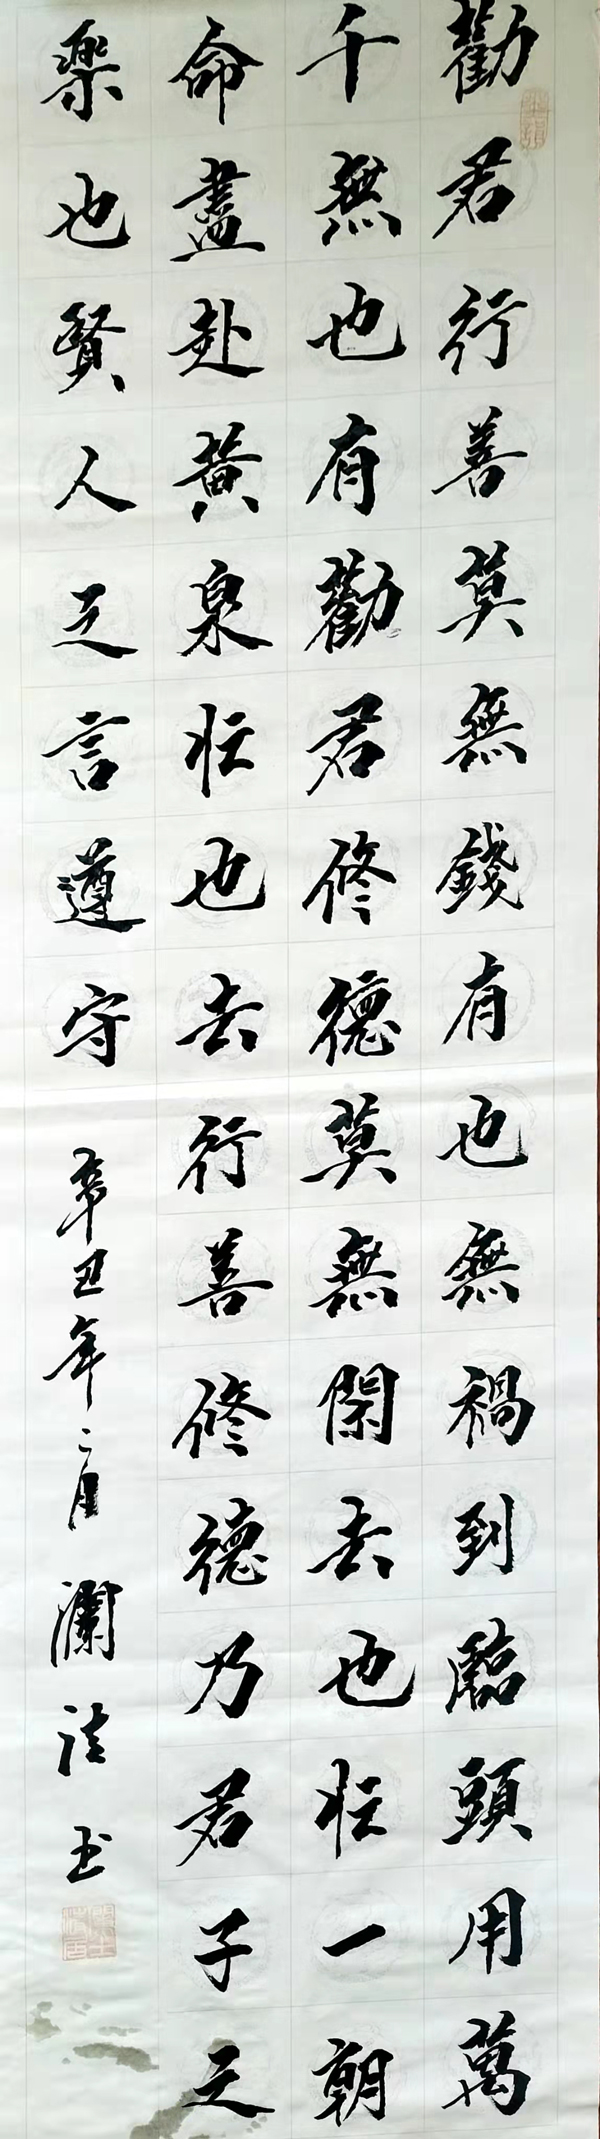 勸君行善莫無錢有也無禍到臨頭用萬
千無也有勸君修德莫無閑去也忙一朝
命盡赴黃泉忙也去行善修德乃君子之
樂也賢人之言遵守
辛丑年二月瀾波玉